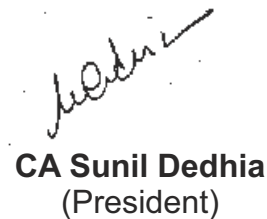 CA Sunil Dedhia
(President)